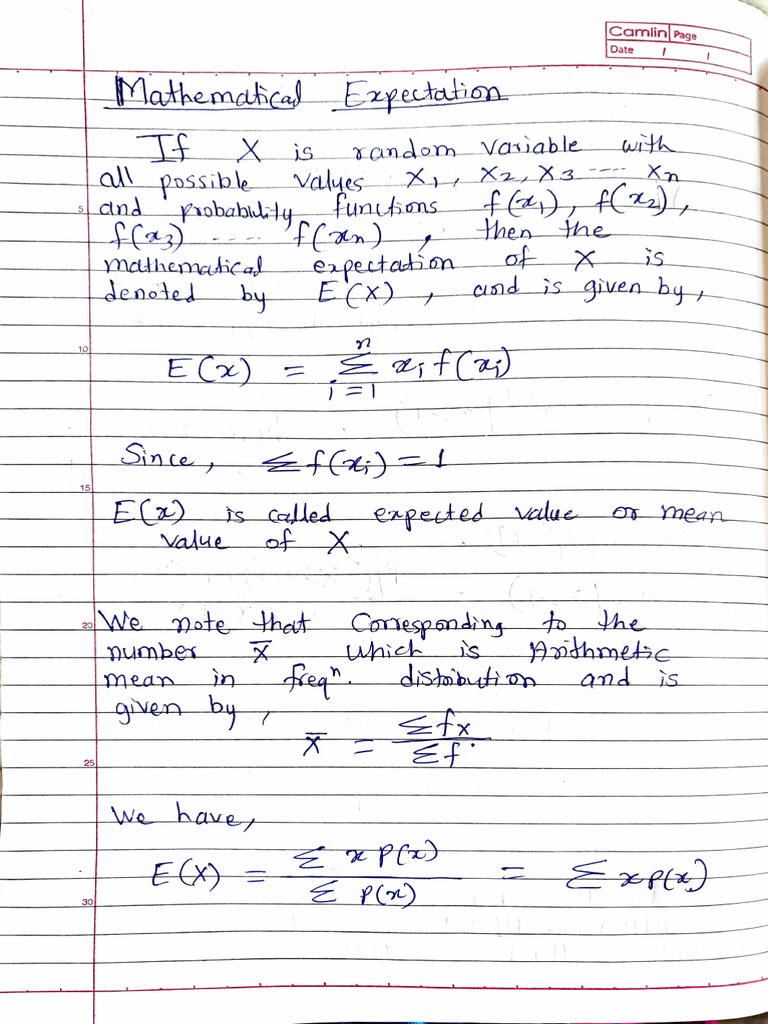 Camlin Page
Date / /
Mathematical Expectation
If X is random variable with
all possible values x1, x2, x3 ---- xn
5
and probability functions f(x1), f(x2),
f(x3) ..... f(xn), then the
mathematical expectation of X is
denoted by E(X), and is given by,
10
n
E(x) = Σ xi f(xi)
i=1
Since, Σf(xi) = 1
15
E(x) is called expected value or mean
value of X.
20
We note that Corresponding to the
number x̄ which is Arithmetic
mean in freqⁿ. distribution and is
given by,
x̄ = Σfx / Σf
25
We have,
E(X) = Σ x P(x) / Σ P(x) = Σ x p(x)
30